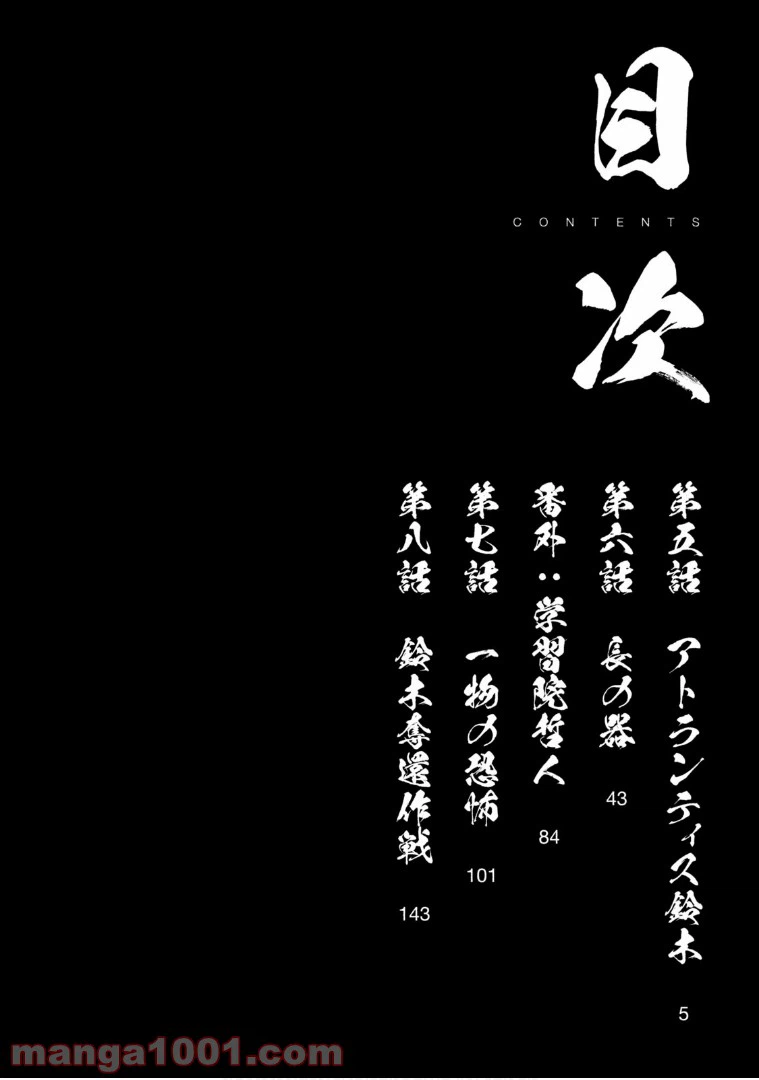 目次
CONTENTS
第五話 アトランティス鈴木 5
第六話 長の器 43
番外：学習院哲人 84
第七話 一物の恐怖 101
第八話 鈴木奪還作戦 143
manga1001.com